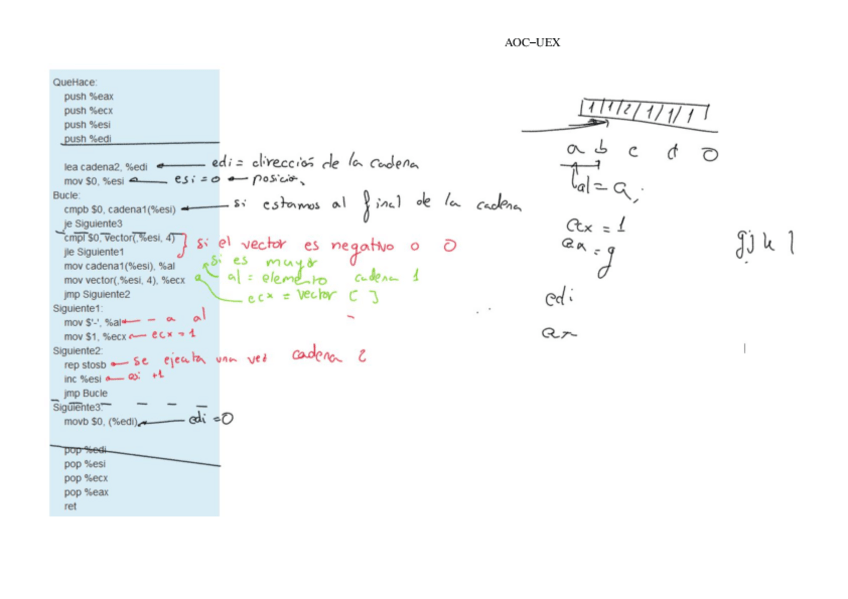 AOC–UEX
QueHace:
push %eax
push %ecx
push %esi
push %edi
lea cadena2, %edi edi = dirección de la cadena
mov $0, %esi esi = 0 posición
Bucle:
cmpb $0, cadena1(%esi) si estamos al final de la cadena
je Siguiente3
cmpl $0, vector(,%esi, 4) si el vector es negativo o 0
jle Siguiente1 si es mayor
mov cadena1(%esi), %al al = elemento cadena 1
mov vector(,%esi, 4), %ecx ecx = vector [ ]
jmp Siguiente2
Siguiente1:
mov $'-', %al - a al
mov $1, %ecx ecx = 1
Siguiente2:
rep stosb se ejecuta una vez cadena 2
inc %esi esi +1
jmp Bucle
Siguiente3:
movb $0, (%edi) edi = 0
pop %edi
pop %esi
pop %ecx
pop %eax
ret
1 1 2 1 1 1
a b c d 0
al = a;
ecx = 1
= g
edi